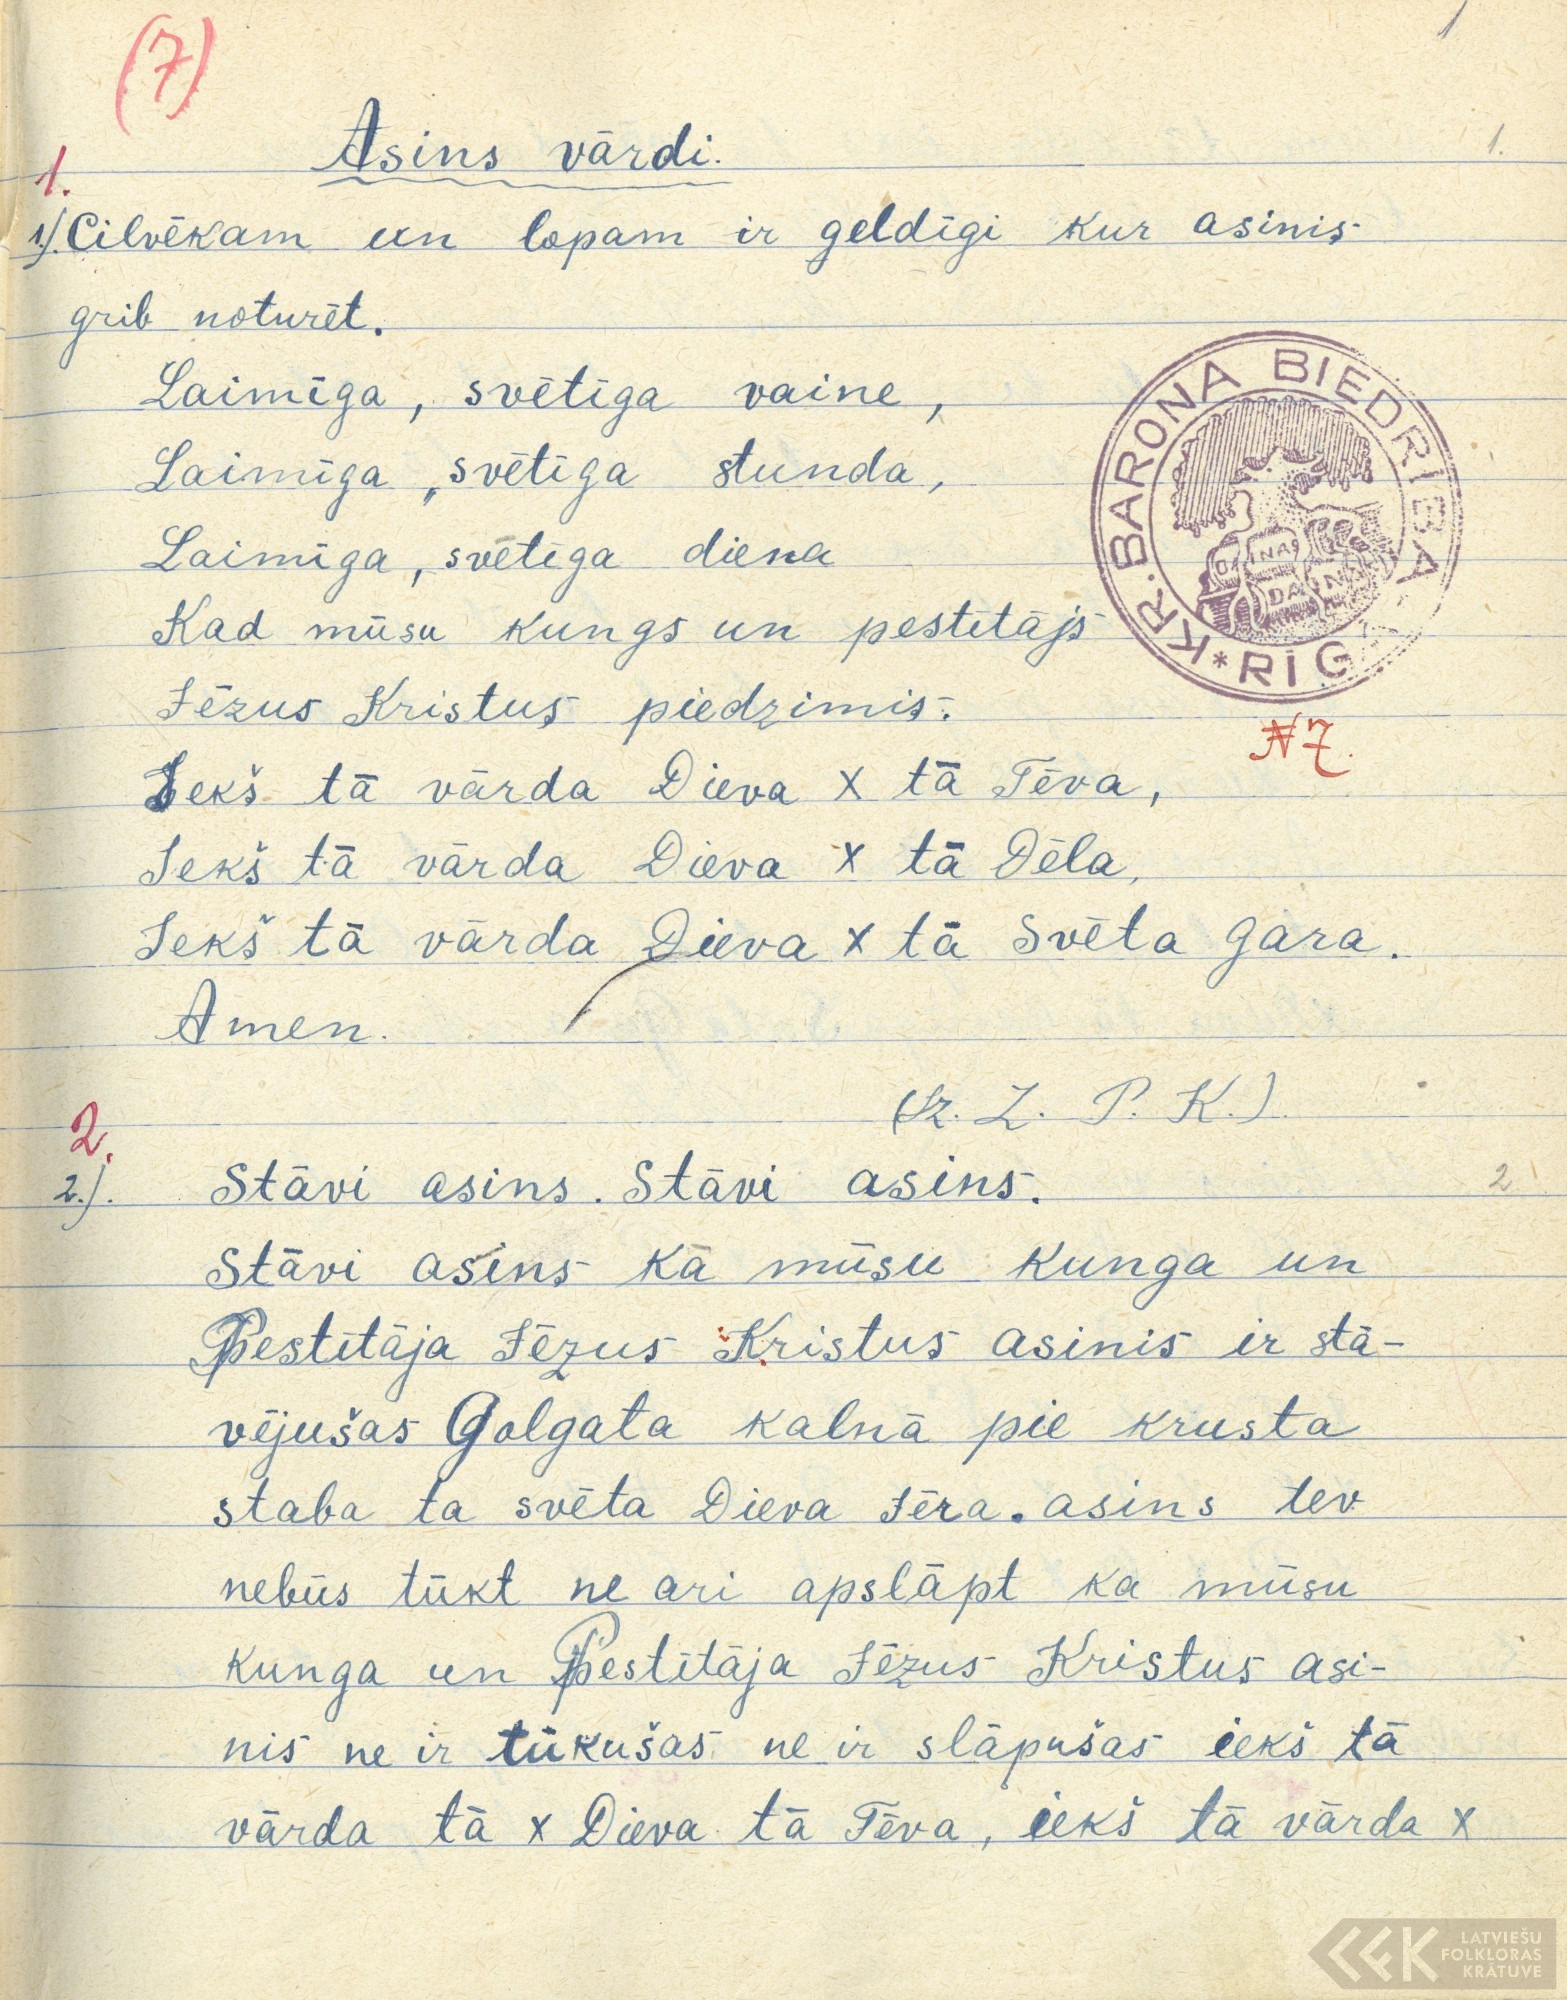 (7)
1
Asins vārdi.
1.
1.
1.) Cilvēkam un lopam ir geldīgi kur asinis
grib noturēt.
Laimīga, svētīga vaine,
Laimīga, svētīga stunda,
Laimīga, svētīga diena
Kad mūsu kungs un pestītājs
Jēzus Kristus piedzimis.
Iekš tā vārda Dieva x tā Tēva,
Iekš tā vārda Dieva x tā Dēla,
Iekš tā vārda Dieva x tā Svēta gara.
Amen.
KR. BARONA BIEDRĪBA * RĪGĀ
DAINAS
DAIN
№ 7.
(Iz. Z. P. K.).
2.
2.). Stāvi asins. Stāvi asins.
2
Stāvi asins kā mūsu kunga un
Pestītāja Jēzus Kristus asinis ir stā-
vējušas Golgata kalnā pie krusta
staba ta svēta Dieva Jēra. asins tev
nebūs tūkt ne ari apslāpt ka mūsu
kunga un Pestītāja Jēzus Kristus asi-
nis ne ir tūkušas ne ir slāpušas iekš tā
vārda tā x Dieva tā Tēva, iekš tā vārda x
LATVIEŠU
FOLKLORAS
KRĀTUVE